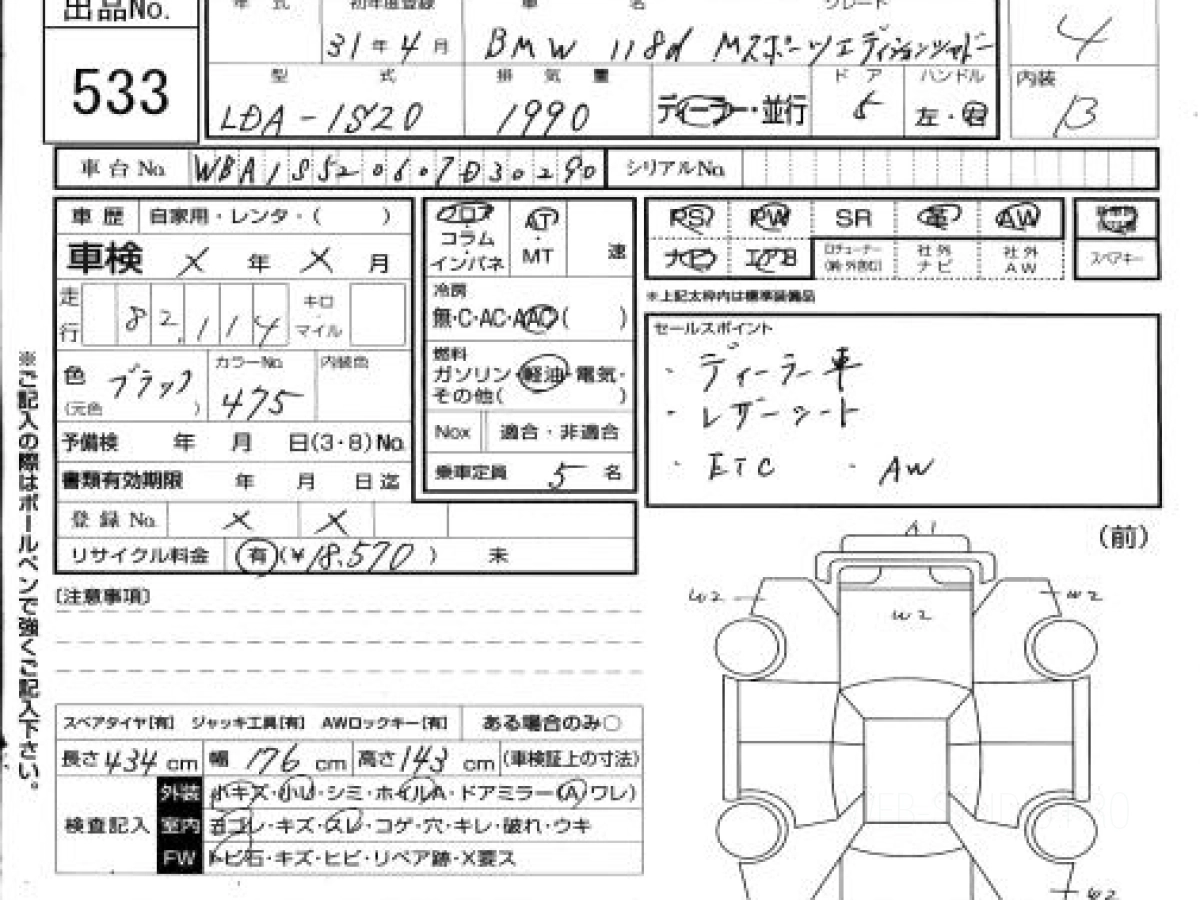 出品No.
533
年 式 初年度登録 車 名 グレード
31年4月 BMW 118d Mスポーツエディションシャドー
4
型 式 排 気 量 ドア ハンドル
LDA-1S20 1990 ディーラー・並行 5 左・右
内装
B
車台No. WBA1S520607D30290 シリアルNo.
車歴 自家用・レンタ・( )
車検 × 年 × 月
走行 82,114 キロ・マイル
色 ブラック カラーNo. 475 内装色
(元色 )
予備検 年 月 日(3・8)No.
書類有効期限 年 月 日迄
登録No. × ×
リサイクル料金 有(¥18,570) 未
フロア
コラム
インパネ
AT・MT 速
冷房
無・C・AC・AAC( )
燃料
ガソリン・軽油・電気・
その他( )
Nox 適合・非適合
乗車定員 5 名
PS PW SR 革 AW
ナビ エアB 社外ナビ 社外AW スペアキー
※上記太枠内は標準装備品
セールスポイント
・ディーラー車
・レザーシート
・ETC ・AW
(前)
A1
W2 W2
W2
W2
[注意事項]
スペアタイヤ[有] ジャッキ工具[有] AWロックキー[有] ある場合のみ○
長さ434cm 幅176cm 高さ143cm (車検証上の寸法)
検査記入
外装 小キズ・小U・シミ・ホイルA・ドアミラー(A)ワレ)
室内 ヨゴレ・キズ・スレ・コゲ・穴・キレ・破れ・ウキ
FW トビ石・キズ・ヒビ・リペア跡・X要ス
※ご記入の際はボールペンで強くご記入下さい。